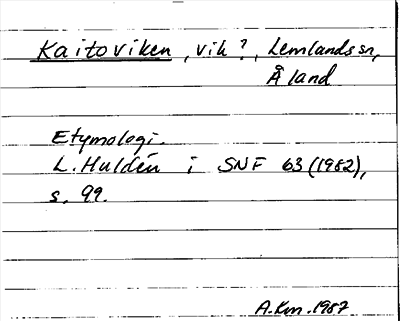 Kaitoviken, vik?, Lemlands sn,
Åland
Etymologi.
L. Huldén i SNF 63 (1982),
s. 99.
A.Km. 1987